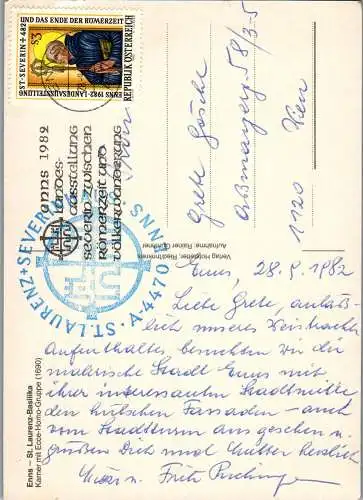 ST·SEVERIN +482 UND DAS ENDE DER RÖMERZEIT
S3
REPUBLIK ÖSTERREICH
ENNS·1982·LANDESAUSSTELLUNG
enns 1982
landes-
ausstellung
severin zwischen
römerzeit und
völkerwanderung
ST. LAURENZ + SEVERIN · A-4470 ENNS
Grete
Aßmayerg. 58/3-5
1120 Wien
Verlag Hofstetter, Ried/Innkreis
Aufnahme: Rainer
Enns – St. Laurenz-Basilika
Karner mit Ecce-Homo-Gruppe (1690)
Enns, 28.9.1982
Liebe Grete, anläß-
lich unseres
Aufenthaltes, besuchten wir die
malerische Stadt Enns mit
ihrer interessanten Stadtmitte
den hübschen Fassaden – auch
vom Stadtturm aus gesehen u.
grüßen Dich und Mutter herzlich
u. Fritz